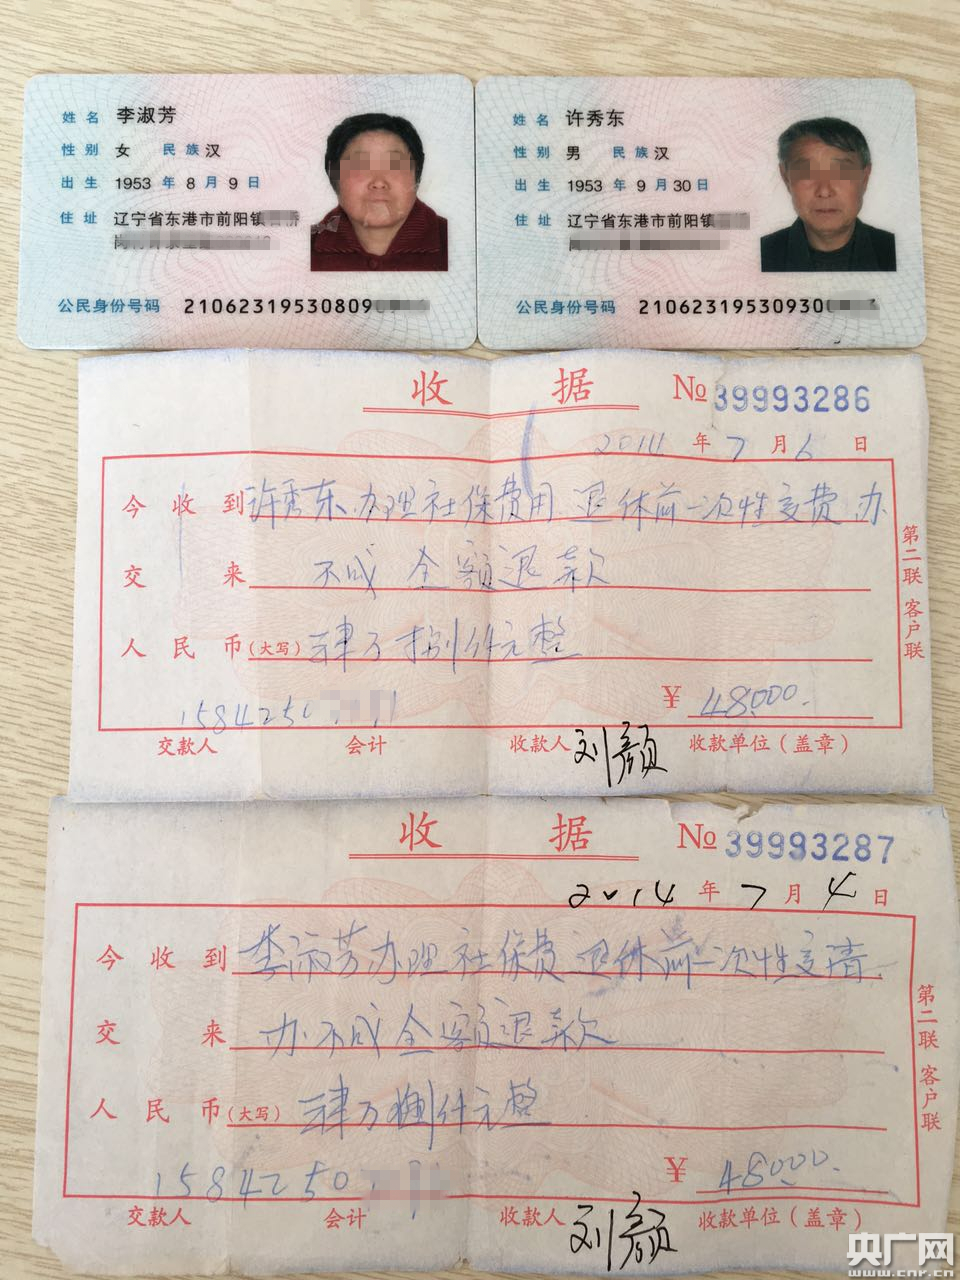 姓名 李淑芳
性别 女 民族 汉
出生 1953 年 8 月 9 日
住址 辽宁省东港市前阳镇
公民身份号码 21062319530809
姓名 许秀东
性别 男 民族 汉
出生 1953 年 9 月 30 日
住址 辽宁省东港市前阳镇
公民身份号码 21062319530930
收据 № 39993286
2014 年 7 月 6 日
今收到 许秀东办理社保费用 退休前一次性交费 办
交来 不成 全额退款
人民币(大写) 肆万捌仟元整
1584250 ¥ 48000.
交款人 会计 收款人 刘颜 收款单位(盖章)
第二联 客户联
收据 № 39993287
2014 年 7 月 4 日
今收到 李淑芳办理社保费 退休前一次性交清
交来 办不成全额退款
人民币(大写) 肆万捌仟元整
1584250 ¥ 48000.
交款人 会计 收款人 刘颜 收款单位(盖章)
第二联 客户联
央广网
www.cnr.cn